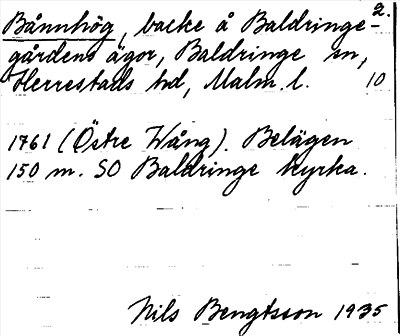 2.
Bånnhög, backe å Baldringe-
gårdens ägor, Baldringe sn,
Herrestads hd, Malm. l. 10
1761 (Östre Wång). Belägen
150 m. SO Baldringe kyrka.
Nils Bengtsson 1935